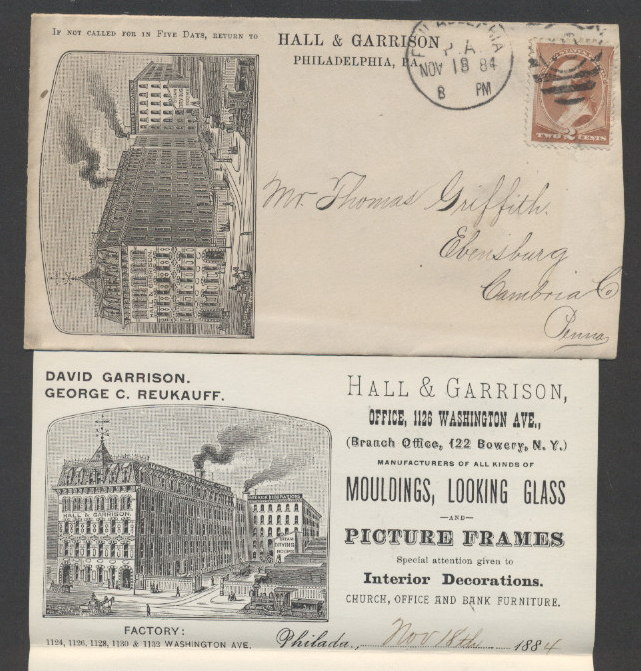 IF NOT CALLED FOR IN FIVE DAYS, RETURN TO
HALL & GARRISON
PHILADELPHIA, PA.
PHILADELPHIA
P.A.
NOV 18 84
8 PM
TWO 2 CENTS
HALL & GARRISON
Mr. Thomas Griffith.
Ebensburg
Cambria Co
Penna
DAVID GARRISON.
GEORGE C. REUKAUFF.
HALL & GARRISON.
INTERIOR DECORATIONS
STEAM
DRYING
ROOMS
FACTORY:
1124, 1126, 1128, 1130 & 1132 WASHINGTON AVE.
HALL & GARRISON,
OFFICE, 1126 WASHINGTON AVE.,
(Branch Office, 122 Bowery, N. Y.)
MANUFACTURERS OF ALL KINDS OF
MOULDINGS, LOOKING GLASS
—AND—
PICTURE FRAMES
Special attention given to
Interior Decorations.
CHURCH, OFFICE AND BANK FURNITURE.
Philada., Nov 18th 1884